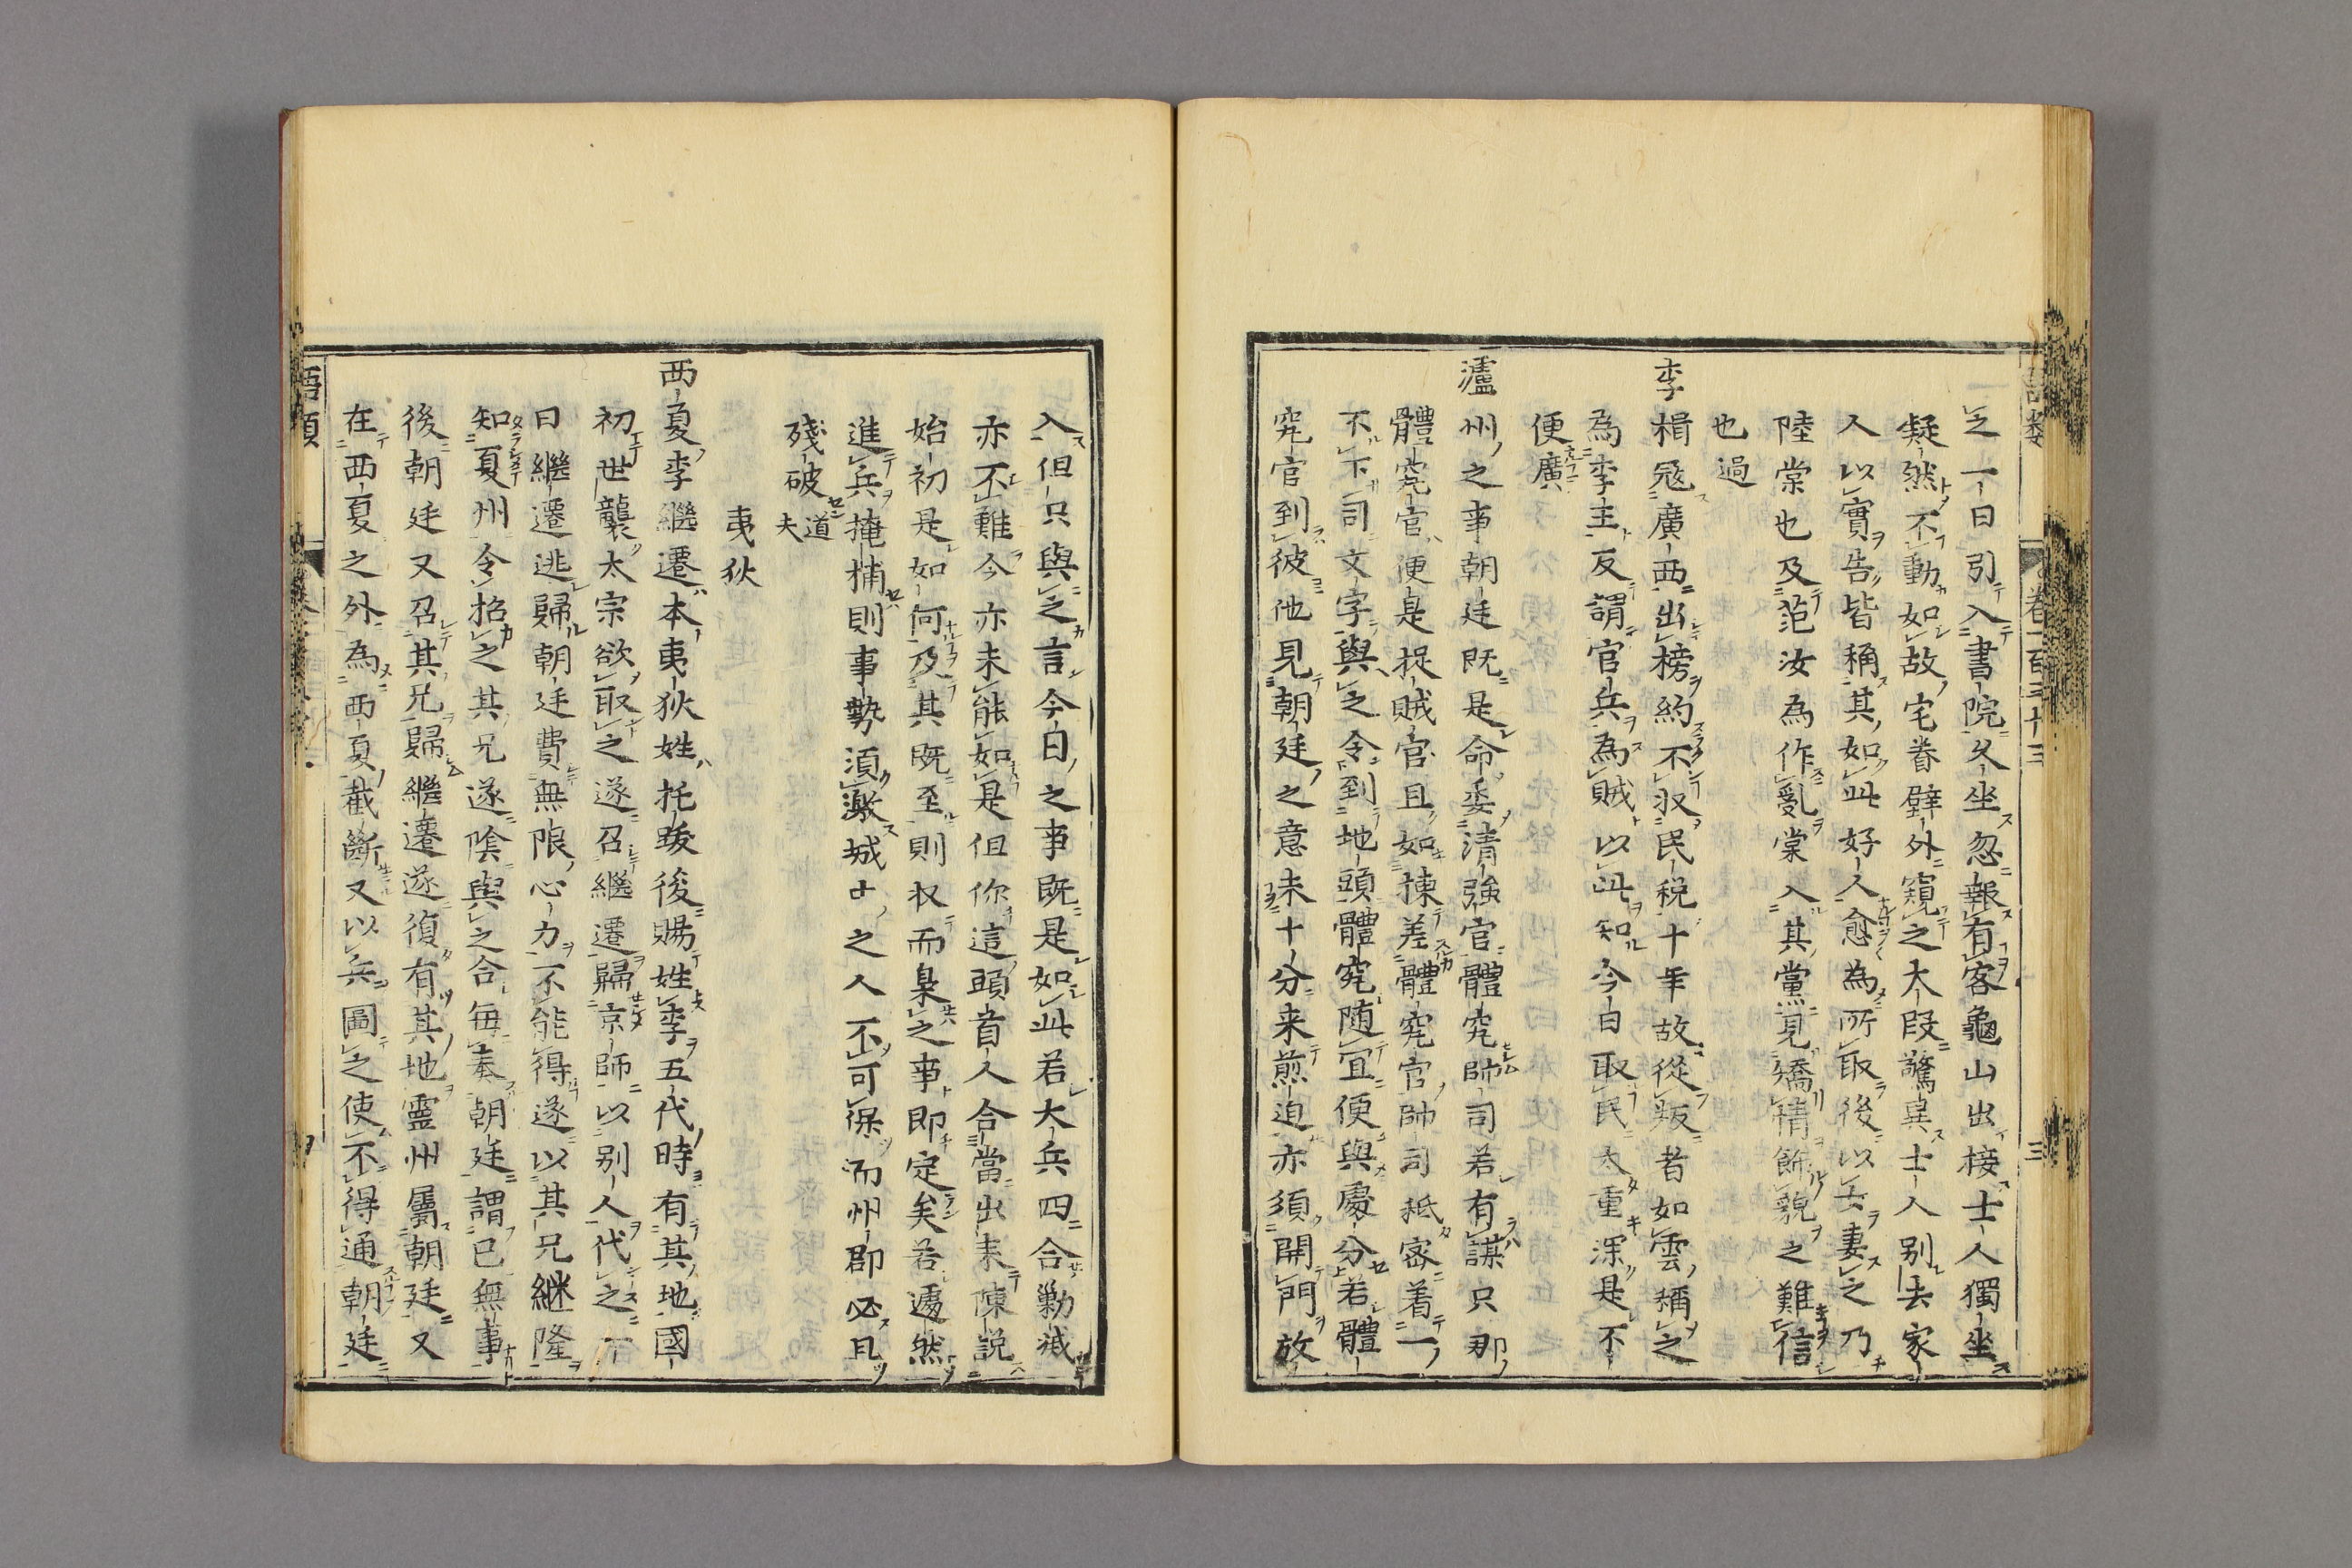 語類
卷一百三十三
三
乏一日引入書院久坐忽報有客龜山出接士人獨坐
凝然不動如故宅眷壁外窺之大段驚異士人别去家
人以實告皆稱其如此好人愈為所取後以女妻之乃
陸棠也及范汝為作亂棠入其黨見矯情飾貌之難信
也過
李楫寇廣西出榜約不収民税十年故從叛者如雲稱之
為李主反謂官兵為賊以此知今日取民太重深是不
便廣
瀘州之事朝廷既是命委清強官體究帥司若有謀只那
體究官便是捉賊官且如揀差體究官帥司秪密着一
不下司文字與之令到地頭體究随宜便與處分若體
究官到彼他見朝廷之意未十分来煎迫亦須開門放
入但只與之言今日之事既是如此若大兵四合勦滅
亦不難今亦未能如是但你這頭首人合當出来陳説
始初是如何及其既至則収而梟之事即定矣若遽然
進兵掩捕則事勢須激城中之人不可保而州郡必且
殘破道夫
夷狄
西夏李繼遷本夷狄姓托跋後賜姓李五代時有其地國
初世襲太宗欲取之遂召繼遷歸京師以别人代之
日繼遷逃歸朝廷費無限心力不能得遂以其兄継隆
知夏州令招之其兄遂陰與之合毎奏朝廷謂已無事
後朝廷又召其兄歸繼遷遂復有其地靈州屬朝廷又
在西夏之外為西夏截斷又以兵圖之使不得通朝廷
語類